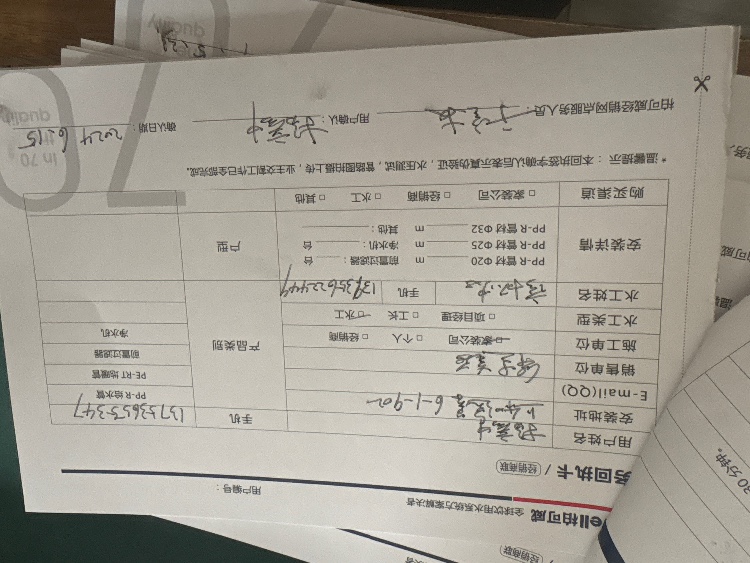 ell柏可威 全球饮用水系统方案解决者
用户编号：
务回执卡 / 经销商联
用户姓名 手机 13753655347
安装地址 6-1-902
E-mail(QQ)
销售单位
施工单位 家装公司 个人 经销商
水工类型 项目经理 工长 水工
水工姓名 手机 13935622449
产品类别
PP-R 给水管
PE-RT 地暖管
前置过滤器
净水机
安装详情
PP-R 管材 Φ20 m 前置过滤器： 台
PP-R 管材 Φ25 m 净水机： 台
PP-R 管材 Φ32 m 其他：
户型
购买渠道 家装公司 经销商 水工 其他
* 温馨提示：本回执签字确认后表示真伪验证，水压测试，管路图拍摄上传，业主交割工作已全部完成。
柏可威经销网点服务人员： 用户确认： 确认日期： 2024 6.15
in 70
quality
quality
经销商联
30 分钟。